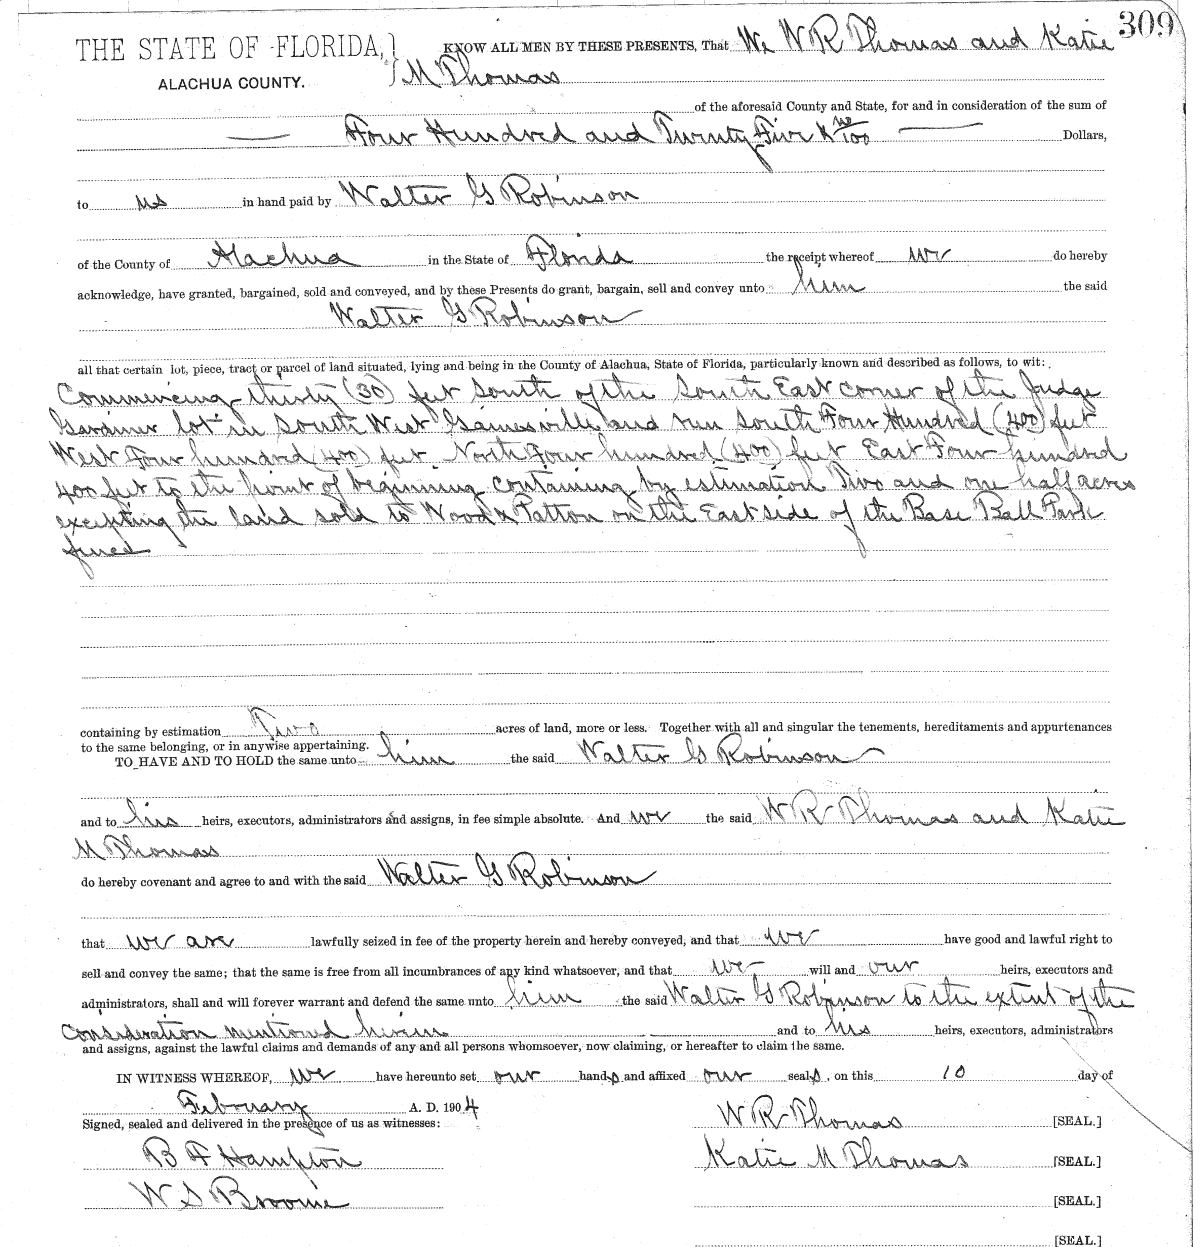 309
THE STATE OF FLORIDA, } KNOW ALL MEN BY THESE PRESENTS, That We W R Thomas and Katie
ALACHUA COUNTY. M Thomas
of the aforesaid County and State, for and in consideration of the sum of
Four Hundred and Twenty Five & no/100 Dollars,
to us in hand paid by Walter G Robinson
of the County of Alachua in the State of Florida the receipt whereof we do hereby
acknowledge, have granted, bargained, sold and conveyed, and by these Presents do grant, bargain, sell and convey unto him the said
Walter G Robinson
all that certain lot, piece, tract or parcel of land situated, lying and being in the County of Alachua, State of Florida, particularly known and described as follows, to wit:
Commencing thirty (30) feet South of the South East corner of the Judge
Gardner lot in South West Gainesville and run South Four Hundred (400) feet
West Four hundred (400) feet North Four hundred (400) feet East Four hundred
400 feet to the point of beginning containing by estimation Two and one half acres
excepting the land sold to Wood & Patton on the East side of the Base Ball Park
fence
containing by estimation Two acres of land, more or less. Together with all and singular the tenements, hereditaments and appurtenances
to the same belonging, or in anywise appertaining.
TO HAVE AND TO HOLD the same unto him the said Walter G Robinson
and to his heirs, executors, administrators and assigns, in fee simple absolute. And we the said W R Thomas and Katie
M Thomas
do hereby covenant and agree to and with the said Walter G Robinson
that we are lawfully seized in fee of the property herein and hereby conveyed, and that we have good and lawful right to
sell and convey the same; that the same is free from all incumbrances of any kind whatsoever, and that we will and our heirs, executors and
administrators, shall and will forever warrant and defend the same unto him the said Walter G Robinson to the extent of the
consideration mentioned herein and to his heirs, executors, administrators
and assigns, against the lawful claims and demands of any and all persons whomsoever, now claiming, or hereafter to claim the same.
IN WITNESS WHEREOF, we have hereunto set our hands and affixed our seals, on this 10 day of
February A. D. 1904
Signed, sealed and delivered in the presence of us as witnesses: W R Thomas [SEAL.]
B F Hampton Katie M Thomas [SEAL.]
W S Broome [SEAL.]
[SEAL.]